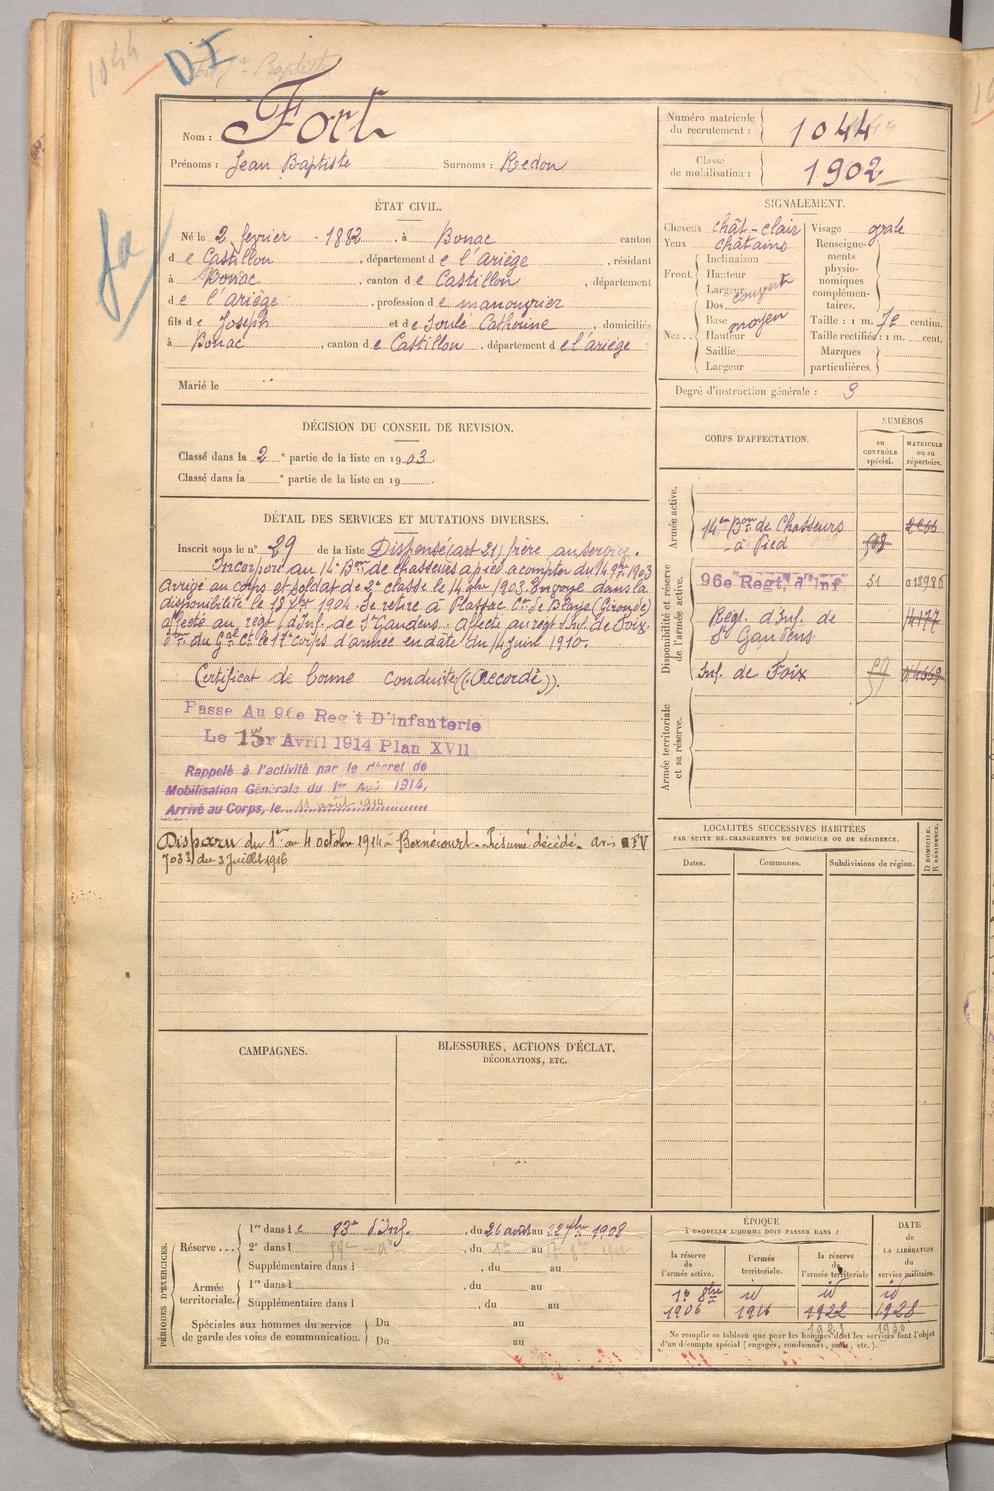 1044
D I
Fort Jn Baptiste
fa
Nom : Fort
Prénoms : Jean Baptiste Surnoms : Redon
Numéro matricule du recrutement : 1044
Classe de mobilisation : 1902
ÉTAT CIVIL.
Né le 2 fevrier 1882, à Bonac canton
de Castillon, département de l'Ariège, résidant
à Bonac, canton de Castillon, département
de l'ariège, profession de manouvrier
fils de Joseph et de Soulé Catherine, domiciliés
à Bonac, canton de Castillon, département de l'ariège
Marié le
SIGNALEMENT.
Cheveux chât-clair
Yeux châtains
Front Inclinaison
Hauteur
Largeur couvert
Nez Dos
Base moyen
Hauteur
Saillie
Largeur
Visage ovale
Renseignements physionomiques complémentaires.
Taille : 1 m. 70 centim.
Taille rectifiée : 1 m. cent.
Marques particulières.
Degré d'instruction générale : 3
DÉCISION DU CONSEIL DE REVISION.
Classé dans la 2e partie de la liste en 1903.
Classé dans la e partie de la liste en 19 .
DÉTAIL DES SERVICES ET MUTATIONS DIVERSES.
Inscrit sous le n° 29 de la liste Dispensé (art 21) frère au service.
Incorporé au 14e Bon de chasseurs à pied à compter du 14 9bre 1903
Arrivé au corps et soldat de 2e classe le 14 9bre 1903. Envoyé dans la
disponibilité le 18 7bre 1904. Se retire à Plassac Con de Blaye (Gironde)
affecté au régt d'Inf. de St Gaudens. Affecté au régt Inf. de Foix.
du Gal Ct le 17e corps d'armée en date du 14 juin 1910.
Certificat de bonne conduite ((Accordé)).
Passe Au 96e Reg't D'Infanterie
Le 1er Avril 1914 Plan XVII
Rappelé à l'activité par le décret de
Mobilisation Générale du 1er Août 1914,
Arrivé au Corps, le 11 août 1914
Disparu du 1er au 4 octobre 1914 à Bernécourt. Présumé décédé. avis FV
7033 du 3 Juillet 1916
CORPS D'AFFECTATION.
NUMÉROS
au CONTRÔLE spécial.
MATRICULE ou au répertoire.
Armée active.
14em Bon de Chasseurs à Pied 2866
Disponibilité et réserve de l'armée active.
96e Regt, d'Inf 31
Régt. d'Inf. de St Gaudens 14177
Inf. de Foix
Armée territoriale et sa réserve.
LOCALITÉS SUCCESSIVES HABITÉES
PAR SUITE DE CHANGEMENTS DE DOMICILE OU DE RÉSIDENCE.
Dates. Communes. Subdivisions de région. D DOMICILE. R RÉSIDENCE.
CAMPAGNES.
BLESSURES, ACTIONS D'ÉCLAT,
DÉCORATIONS, ETC.
PÉRIODES D'EXERCICES.
Réserve ... 1re dans le 83e d'Inf., du 26 août au 22 7bre 1908
2e dans l , du au
Supplémentaire dans l , du au
Armée territoriale. 1re dans l , du au
Supplémentaire dans l , du au
Spéciales aux hommes du service de garde des voies de communication. Du au
Du au
ÉPOQUE
À LAQUELLE L'HOMME DOIT PASSER DANS :
la réserve de l'armée active. l'armée territoriale. la réserve de l'armée territoriale
DATE de LA LIBÉRATION du service militaire.
1er 8bre id id id
1906 1916 1922 1928
Ne remplir ce tableau que pour les hommes dont les services font l'objet
d'un décompte spécial (engagés, condamnés, omis, etc.).